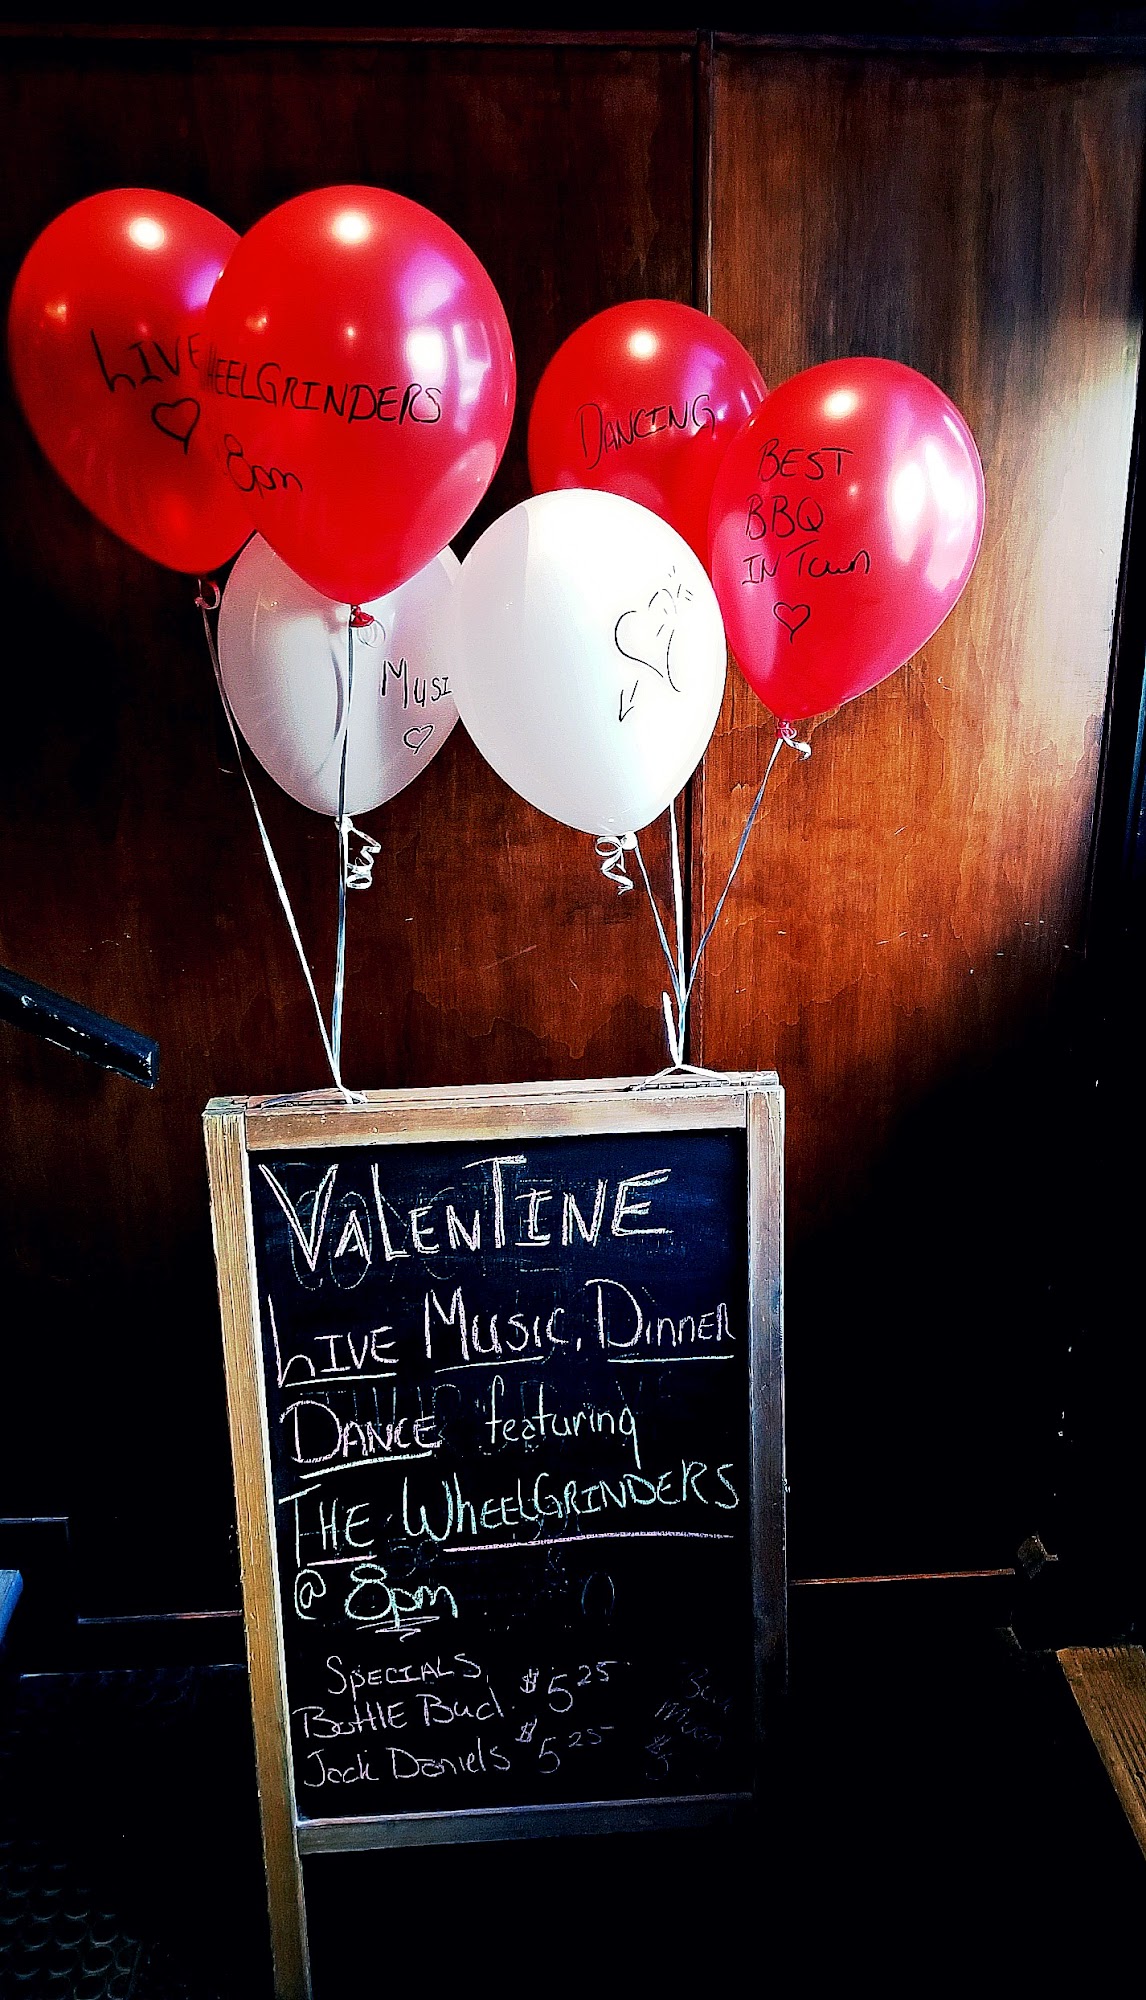 LIVE
HEELGRINDERS
8pm
DANCING
BEST
BBQ
IN Town
MUSI
VALENTINE
LIVE MUSIC, DINNER
DANCE featuring
THE WHEELGRINDERS
@ 8pm
SPECIALS
BOTTLE Bud. $5 25
Jack Daniels $5 25
$5